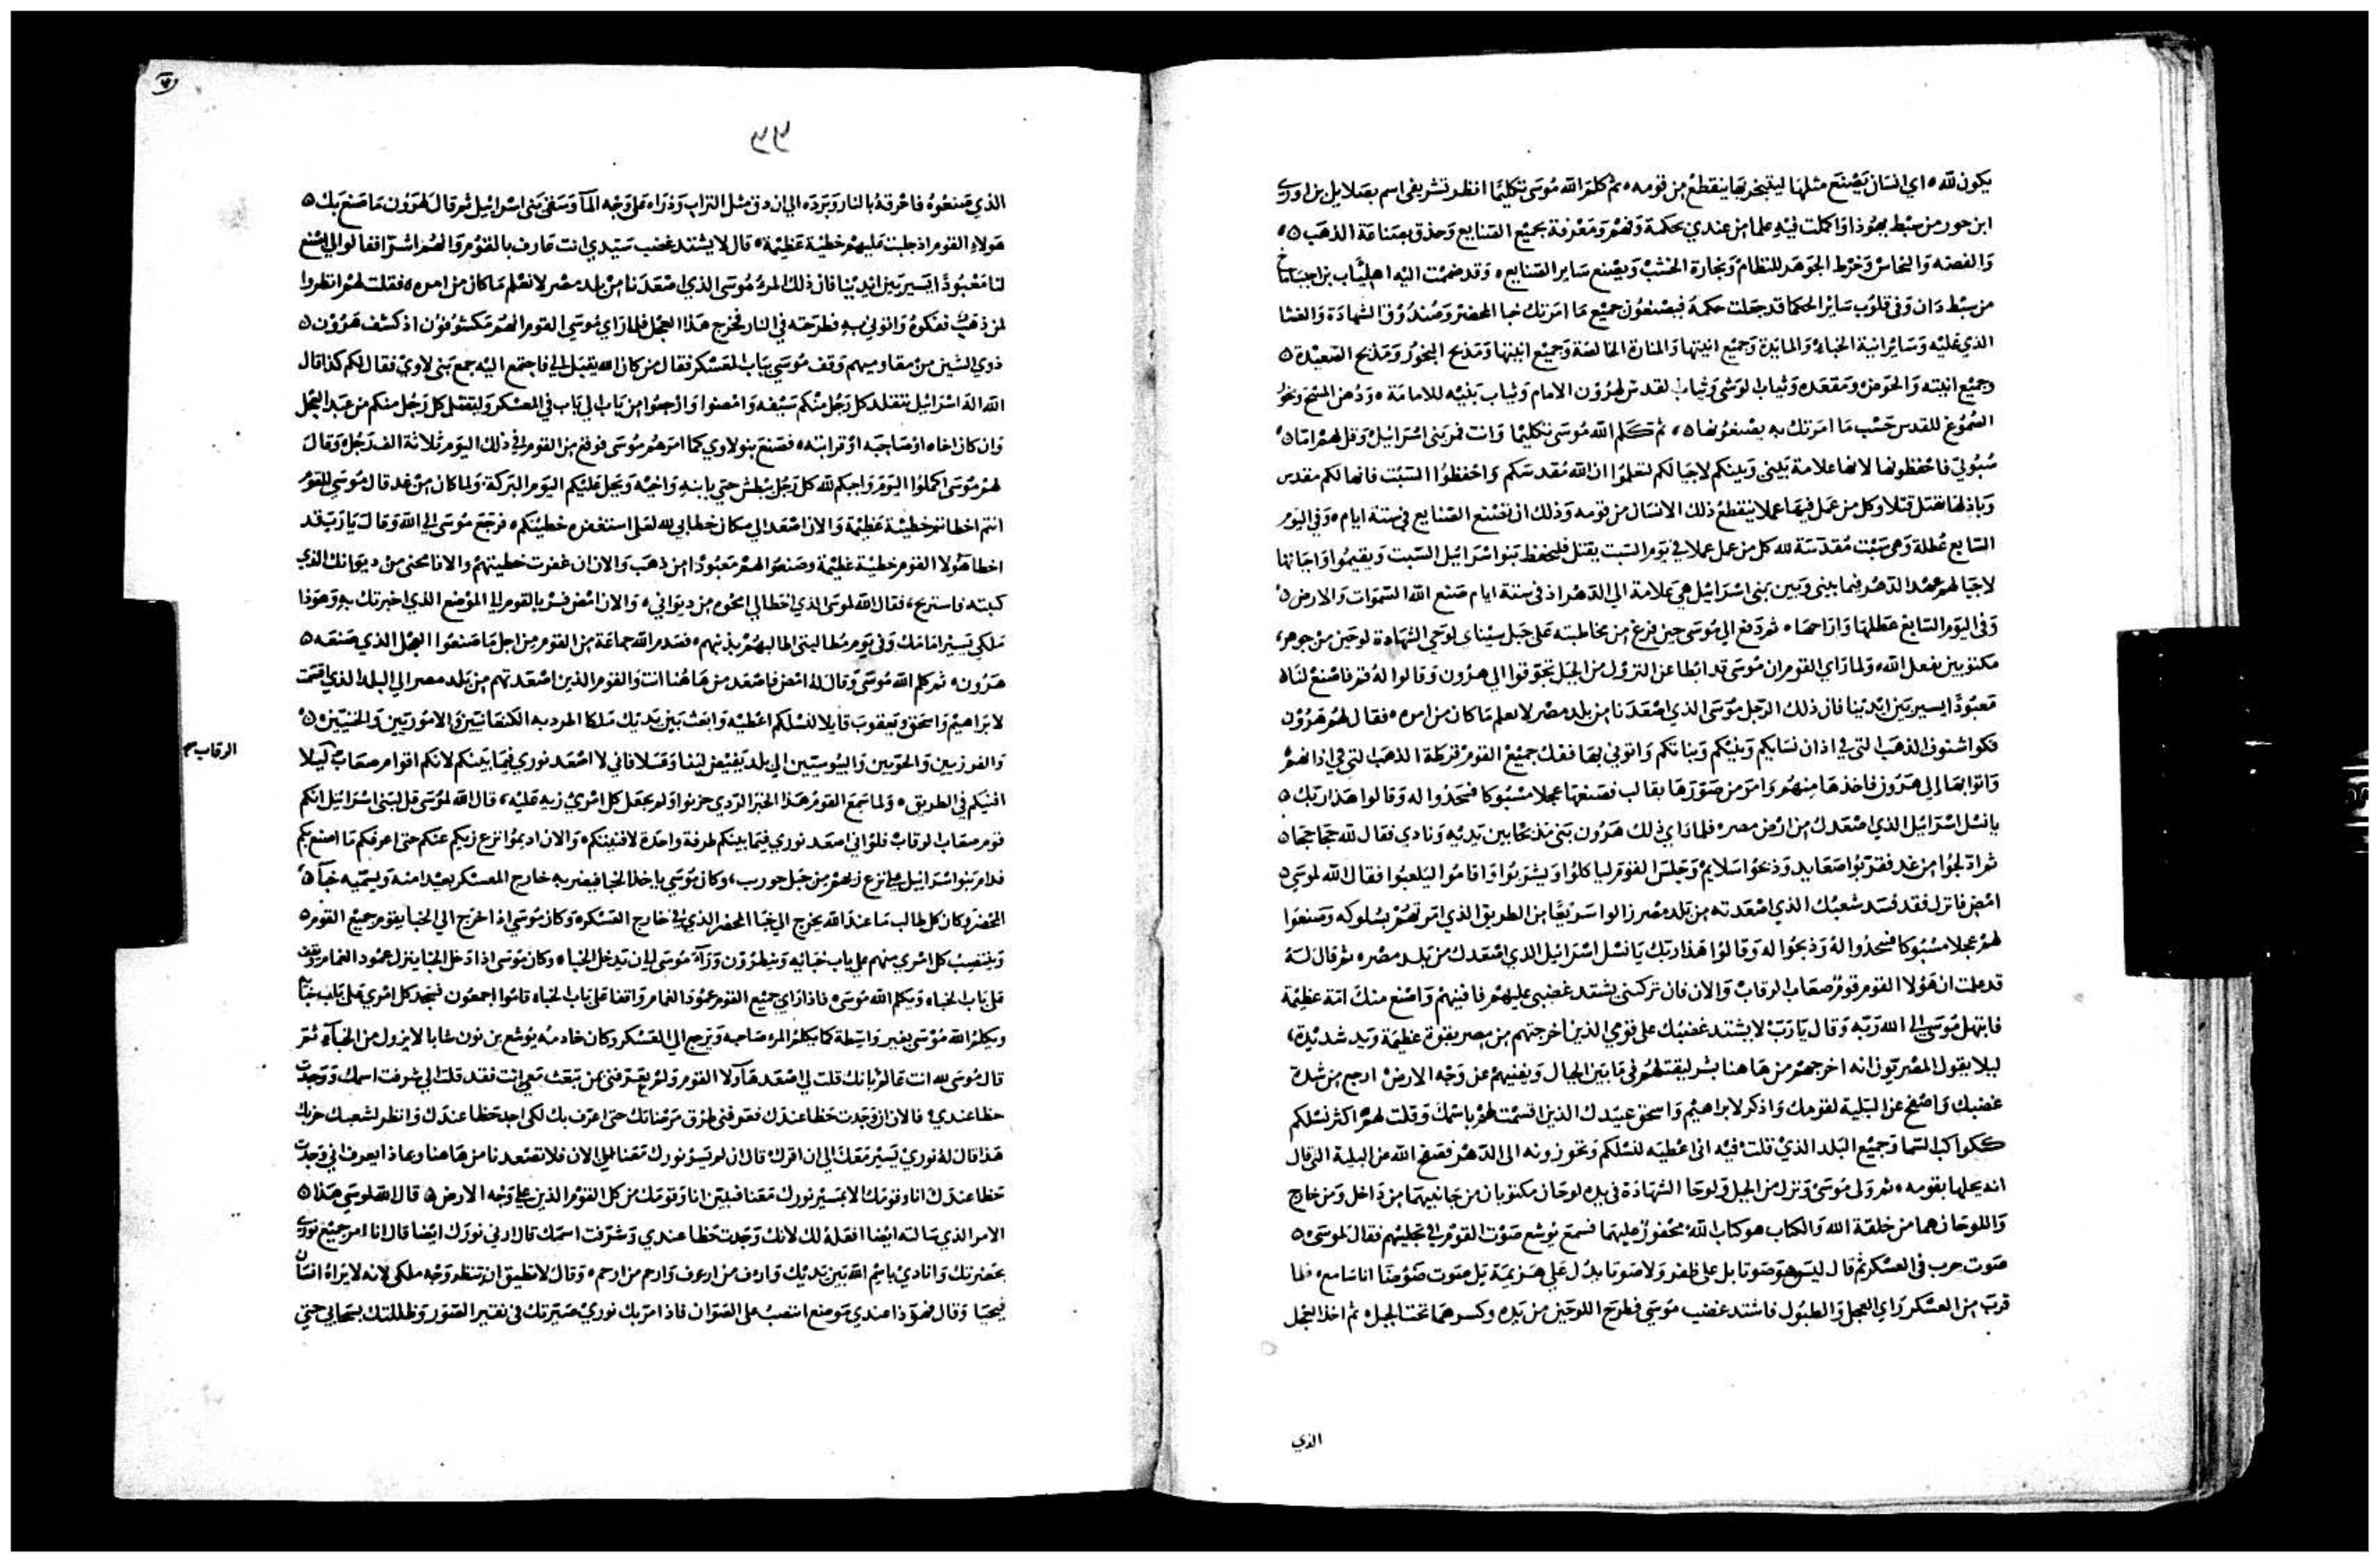 يكون لله ه اي انسان يصنع مثلها ليتبخر بها ينقطع من قومه ه ثم كلم الله موسى تكليما انظر تشريفي اسم بصلايل بن اوري
ابن حور من سبط يهوذا واكملت فيه علما من عندي بحكمة وفهم ومعرفة بجميع الصنايع وحذق بصناعة الذهب ه
والفضه والنحاس وخرط الجوهر للنظام ونجارة الخشب ويصنع ساير الصنايع ه وقد ضممت اليه اهلياب بن
من سبط دان وفي قلوب ساير الحكما قد جعلت حكمة فيصنعون جميع ما امرتك خبا المحضر وصندوق الشهادة والغشا
الذي عليه وساير انية الخباء والمايدة وجميع انيتها والمنارة الخالصة وجميع انيتها ومذبح البخور ومذبح الصعيدة ه
وجميع انيته والحوض ومقعده وثياب الوشى وثياب القدس لهرون الامام وثياب بنيه للامامة ه ودهن المسح وبخور
الصموغ للقدس حسب ما امرتك به يصنعونها ه ثم كلم الله موسى تكليما وانت فمر بني اسرائيل وقل لهم اما ه
سبوتي فاحفظوها لانها علامة بيني وبينكم لاجيالكم لتعلموا ان الله مقدسكم واحفظوا السبت فانها لكم مقدس
وباذلها يقتل قتلا وكل من عمل فيها عملا ينقطع ذلك الانسان من قومه وذلك ان تصنع الصنايع في ستة ايام ه وفي اليوم
السابع عطلة وهي سبت مقدسة لله كل من عمل عملا في يوم السبت يقتل فليحفظ بنو اسرائيل السبت ويقيموا واجاتها
لاجيالهم عهد الدهر فيما بيني وبين بني اسرائيل هي علامة الي الدهر اذ في ستة ايام صنع الله السموات والارض ه
وفي اليوم السابع عطلها واراحها ه ثم دفع الي موسى حين فرغ من مخاطبته على جبل سيناى لوحي الشهادة لوحين من جوهر
مكتوبين بفعل الله ه ولما راى القوم ان موسى قد ابطا عن النزول من الجبل تجوقوا الي هرون وقالوا له قم فاصنع لنا
معبودا يسير بين ايدينا فان ذلك الرجل موسى الذي اصعدنا من بلد مصر لا نعلم ما كان من امره ه فقال لهم هرون
فكوا شنوف الذهب التي في اذان نسايكم وبنيكم وبناتكم واتوني بها ففك جميع القوم قرطة الذهب التي في اذانهم
واتوا بها الي هرون فاخذها منهم وامر من صورها بقالب فصنعها عجلا مسبوكا فسجدوا له وقالوا هذا ربك ه
يا نسل اسرائيل الذي اصعدك من ارض مصر ه فلما راى ذلك هرون بنى مذبحا بين يديه ونادى فقال لله حجا حجا ه
ثم ادلجوا من غد فقربوا صعايد وذبحوا سلايم وجلس القوم لياكلوا ويشربوا واقاموا ليلعبوا فقال الله لموسى ه
امض فانزل فقد فسد شعبك الذي اصعدته من بلد مصر زالوا سريعا من الطريق الذي امرتهم بسلوكه وصنعوا
لهم عجلا مسبوكا فسجدوا له وذبحوا له وقالوا هذا ربك يا نسل اسرائيل الذي اصعدك من بلد مصر ه ثم قال له
قد علمت ان هؤلا القوم قوم صعاب الرقاب والان فان تركتني يشتد غضبي عليهم فافنيهم واصنع منك امة عظيمة
فابتهل موسى الى الله ربه وقال يا رب لا يشتد غضبك على قومي الذين اخرجتهم من مصر بقوة عظيمة ويد شديدة
ليلا يقول المصريون انه اخرجهم من هاهنا بشر ليقتلهم في ما بين الجبال ويفنيهم عن وجه الارض ارجع من شدة
غضبك واصفح عن البلية لقومك واذكر لابراهيم واسحق عبيدك الذين اقسمت لهم باسمك وقلت لهم اكثر نسلكم
ككواكب السما وجميع البلد الذي قلت فيه اني اعطيه لنسلكم وتحوزونه الى الدهر فصفح الله عن البلية التي قال
انه يحلها بقومه ه ثم ولى موسى ونزل من الجبل ولوحا الشهادة في يده لوحان مكتوبان من جانبيهما من داخل ومن خارج
واللوحان هما من خلقة الله والكتاب هو كتاب الله محفور عليهما فسمع يوشع صوت القوم في تجلبهم فقال لموسى ه
صوت حرب في العسكر ثم قال ليس هو صوتا يدل على ظفر ولا صوتا يدل على هزيمة بل صوت ضوضا انا سامع ه فلما
قرب من العسكر راى العجل والطبول فاشتد غضب موسى فطرح اللوحين من يده وكسرهما تحت الجبل ه ثم اخذ العجل
الذي
٩٩
الذي صنعوه فاحرقه بالنار وبرده الي ان دق مثل التراب وذراه على وجه الما وسقى بني اسرائيل ثم قال لهرون ما صنع بك ه
هولاء القوم اذ جلبت عليهم خطية عظيمة ه قال لا يشتد غضب سيدي انت عارف بالقوم وانهم اشرا فقالوا لي اصنع
لنا معبودا يسير بين ايدينا فان ذلك المرء موسى الذي اصعدنا من بلد مصر لا نعلم ما كان من امره ه فقلت لهم انظروا
لمن ذهب ففكوه واتوني به فطرحته في النار فخرج هذا العجل فلما راى موسى القوم انهم مكشوفون اذ كشف هرون ه
ذوي الشين من مقاوميهم وقف موسى بباب المعسكر فقال من كان لله يقبل الي فاجتمع اليه جمع بني لاوي فقال لكم كذا قال
الله اله اسرائيل يتقلد كل رجل منكم سيفه وامضوا وارجعوا من باب الي باب في المعسكر وليقتل كل رجل منكم من عبد العجل
وان كان اخاه او صاحبه او قرابته ه فصنع بنو لاوي كما امرهم موسى فوقع من القوم في ذلك اليوم ثلاثة الف رجل ه وقال
لهم موسى اكملوا اليوم واجبكم لله كل رجل يبطش حتى بابنه واخيه وتحل عليكم اليوم البركة ه ولما كان من غد قال موسى للقوم
انتم اخطاتم خطية عظيمة والان اصعد الي مكان خطابي لله لعلي استغفر خطيتكم ه فرجع موسى الي الله وقال يا رب قد
اخطا هولا القوم خطية عظيمة وصنعوا لهم معبودا من ذهب والان ان غفرت خطيتهم والا فامحني من ديوانك الذي
كتبته فاستريح ه فقال الله لموسى الذي اخطا لي امحوه من ديواني ه والان امض فسر بالقوم الي الموضع الذي اخبرتك به وهوذا
ملكي يسير امامك وفي يوم مطالبتي اطالبهم بذنبهم ه فصدم الله جماعة من القوم من اجل ما صنعوا العجل الذي صنعه ه
هرون ه ثم كلم الله موسى وقال له امض فاصعد من هاهنا انت والقوم الذين اصعدتهم من بلد مصر الي البلد الذي اقسمت
لابراهيم واسحق ويعقوب قايلا لنسلكم اعطيه وابعث بين يديك ملكا اطرد به الكنعانيين والاموريين والحيثيين ه
والفرزيين والحويين واليبوسيين الي بلد يفيض لبنا وعسلا فاني لا اصعد نوري فيما بينكم لانكم اقوام صعاب كيلا
الرقاب
افنيكم في الطريق ه ولما سمع القوم هذا الخبر الردي حزنوا ولم يجعل كل امرئ زيه عليه ه قال الله لموسى قل لبني اسرائيل انكم
قوم صعاب الرقاب فلو اني اصعد نوري فيما بينكم طرفة واحدة لافنيتكم ه والان اديموا نزع زيكم عنكم حتى اعرفكم ما اصنع بكم
فدام بنو اسرائيل على نزع زيهم من جبل حوريب ه وكان موسى ياخذ الخبا فيضربه خارج المعسكر بعيدا منه ويسميه خبآ ه
المحضر وكان كل طالب ما عند الله يخرج الي خبا المحضر الذي في خارج العسكر ه وكان موسى اذا خرج الي الخبا يقوم جميع القوم ه
وينتصب كل امرئ منهم على باب خبايه وينظرون ورآء موسى الي ان يدخل الخباء ه وكان موسى اذا دخل الخبا ينزل عمود الغمام ويقف
على باب الخباء ويكلم الله موسى ه فاذا راى جميع القوم عمود الغمام واقفا على باب الخباء قاموا اجمعون فيسجد كل امرئ على باب خبآيه
ويكلم الله موسى بغير واسطة كما يكلم المرء صاحبه ويرجع الي العسكر وكان خادمه يوشع بن نون شابا لا يزول من الخبآء ثم
قال موسى لله انت عالم بانك قلت لي اصعد هآولا القوم ولم تعرفني من تبعث معي انت فقد قلت لي شرفت اسمك ووجدت
حظا عندي ه فالان ان وجدت حظا عندك فعرفني طرق مرضاتك حتى اعرف بك لكي اجد حظا عندك وانظر لشعبك حزبك
هذا قال له نوري يسير معك الي ان اقرك قال ان لم يسر نورك معنا الي الان فلا تصعدنا من هاهنا وبماذا يعرف اني وجدت
حظا عندك انا وقومك الا بمسير نورك معنا فنبين انا وقومك من كل القوم الذين على وجه الارض ه قال الله لموسى هذا ه
الامر الذي سالته ايضا افعله لك لانك وجدت حظا عندي وشرفت اسمك قال ارني نورك ايضا قال انا امر جميع نوري
بحضرتك وانادي باسم الله بين يديك واروف من اروف وارحم من ارحم ه وقال لا تطيق ان تنظر وجه ملكي لانه لا يراه انسان
فيحيا وقال فهوذا عندي موضع انتصب على الصوان فاذا مر بك نوري صيرتك في نقير الصور وظللتك بسحابي حتى